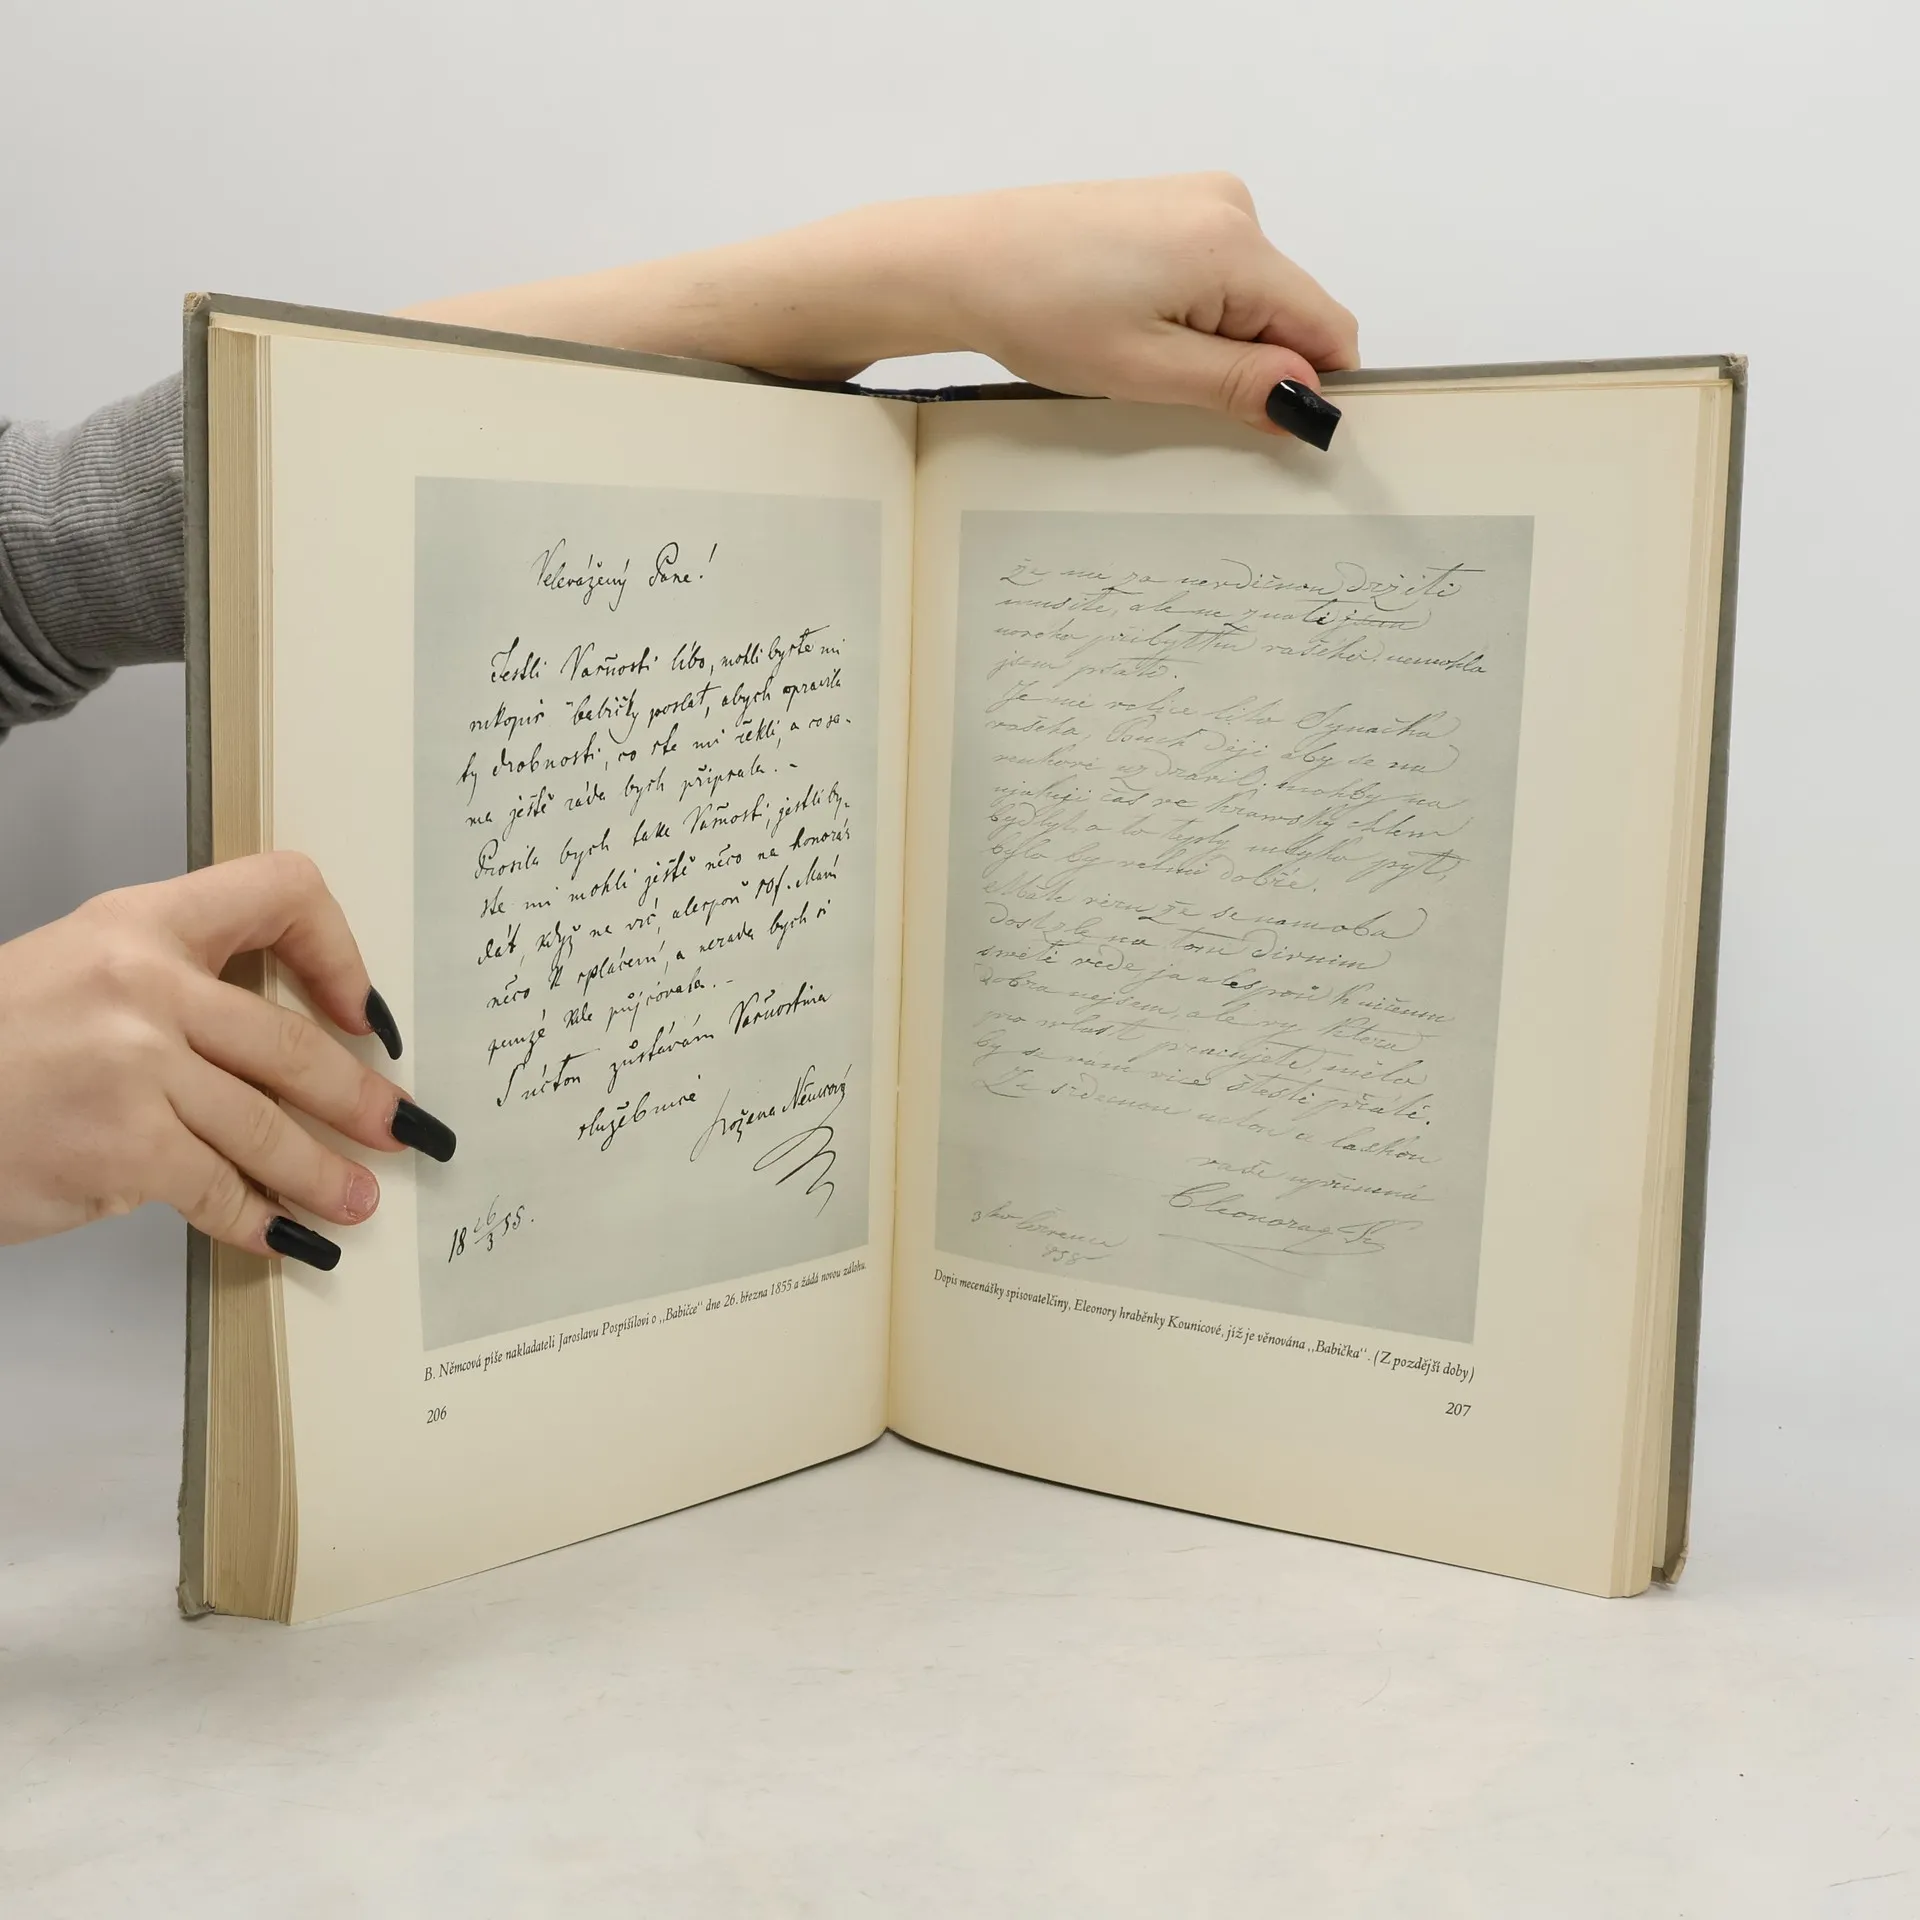 Velevážený Pane!
Jestli Vašnosti libo, mohli byste mi
rukopis babičky poslat, abych opravila
ty drobnosti, co ste mi řekli, a co sa-
ma ještě ráda bych připsala. –
Prosila bych také Vašnosti, jestli by-
ste mi mohli ještě něco na honorár
dát, když ne víc, alespoň 50f. Mám
něco k splácení, a nerada bych si
peníze kde půjčovala. –
S úctou zůstávám Vašnostina
služebnice
Božena Němcová
18 26/3 55.
B. Němcová píše nakladateli Jaroslavu Pospíšilovi o „Babičce“ dne 26. března 1855 a žádá novou zálohu.
206
že mě za nevděčnou držeti
musíte, ale ne znati jsem
příbytku vašeho nemohla
jsem psáti.
Je mě velice líto Synáčka
vašeho, Buch dejž aby se na
uzdravil, mohl by na
čas ve
bydlet, a to teplý mlýko pyt,
bylo by velmi dobře.
Máte víru že se namoba
dost zle na tom divním
světě vede, ja alespoň k ničemu
dobra nejsem, ale vy která
pro vlast pracujete, mělo
by se vám více štěstí přáti.
Ze srdečnou uctou a laskou
vaše upřímná
Eleonora K
3ho Července
858
Dopis mecenášky spisovatelčiny, Eleonory hraběnky Kounicové, jíž je věnována „Babička“. (Z pozdější doby)
207